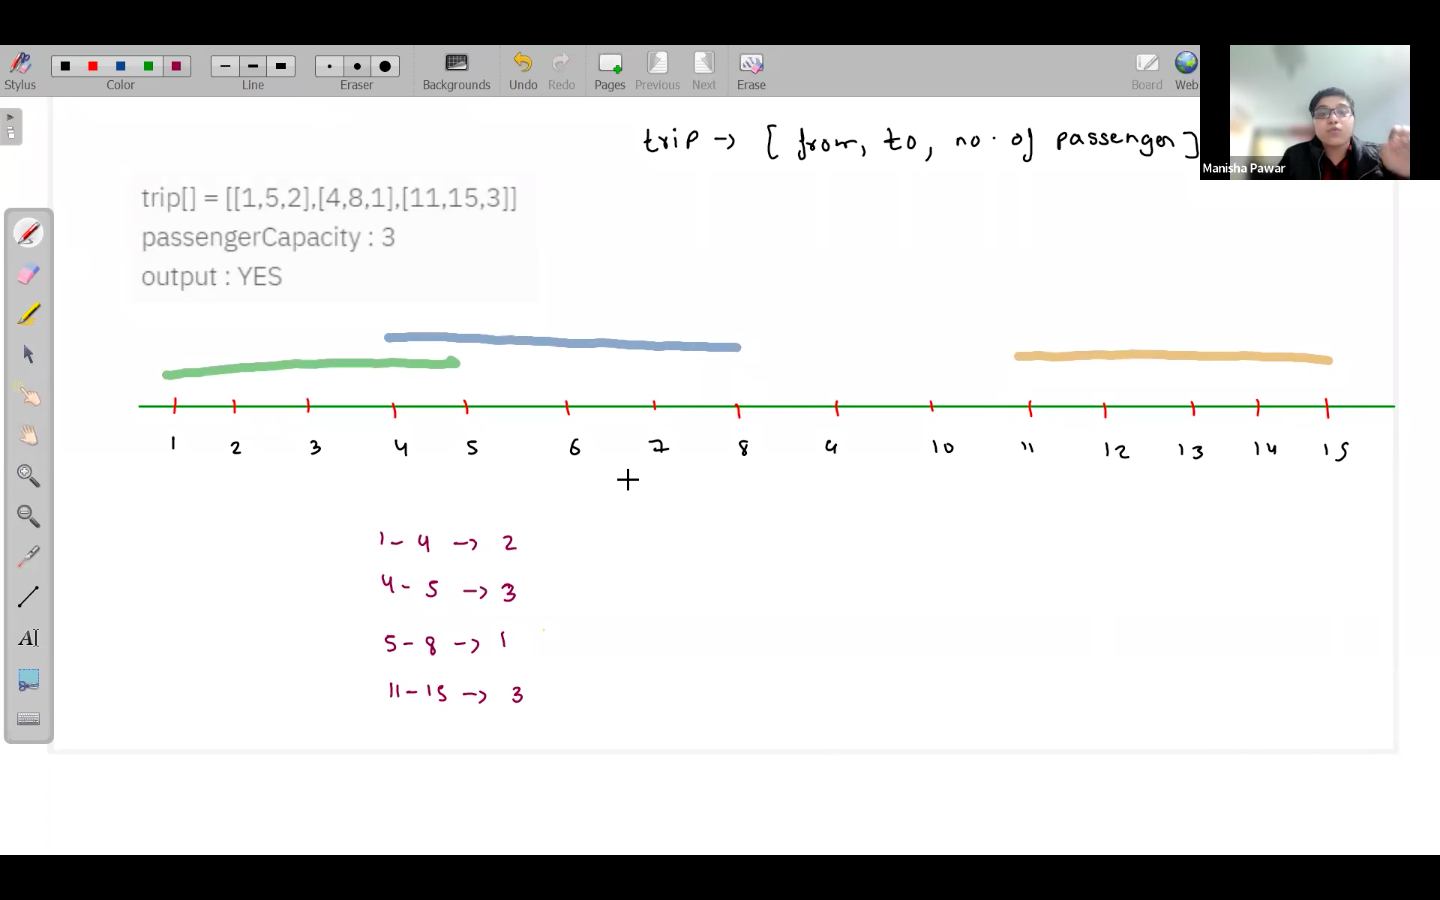 Stylus
Color
Line
Eraser
Backgrounds
Undo
Redo
Pages
Previous
Next
Erase
Board
Web
Manisha Pawar
trip -> [ from, to, no. of passenger ]
trip[] = [[1,5,2],[4,8,1],[11,15,3]]
passengerCapacity : 3
output : YES
1 2 3 4 5 6 7 8 9 10 11 12 13 14 15
1 - 4 -> 2
4 - 5 -> 3
5 - 8 -> 1
11 - 15 -> 3
AI